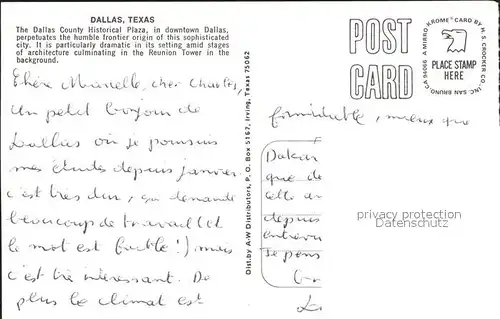 DALLAS, TEXAS
The Dallas County Historical Plaza, in downtown Dallas,
perpetuates the humble frontier origin of this sophisticated
city. It is particularly dramatic in its setting amid stages
of architecture culminating in the Reunion Tower in the
background.
Chère Murielle, cher Charles,
Un petit bonjour de
Dallas où je poursuis
mes études depuis janvier.
c'est très dur, ça demande
beaucoup de travail (et
le mot est faible!) mais
c'est très intéressant. De
plus le climat est
Dist. by A-W Distributors, P. O. Box 5167, Irving, Texas 75062
POST
CARD
A MIRRO-KROME® CARD BY H. S. CROCKER CO., INC. SAN BRUNO, CA 94066
PLACE STAMP
HERE
formidable, mieux que
Dakar
que de
cette an
depuis
entrevu
Je pens
privacy protection
Datenschutz